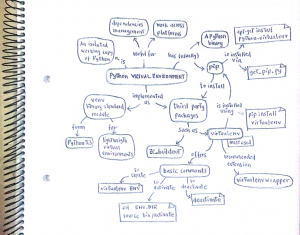 dependencies
management
work across
platforms
A Python
binary
apt-get install
python-virtualenv
An isolated
working copy
of Python
is
useful for
has (usually)
is installed
via
get-pip.py
PYTHON VIRTUAL ENVIRONMENT
pip
to install
implemented
as
venv
library standard
module
Third party
packages
is
installed
using
pip install
virtualenv
from
for
such as
virtualenv
most used
Python 3.3
lightweight
virtual
environments
ZC.buildout
offers
recommended
extension
basic commands
virtualenvwrapper
to
create
to
activate
to
deactivate
virtualenv ENV
deactivate
cd ENV_DIR
source bin/activate